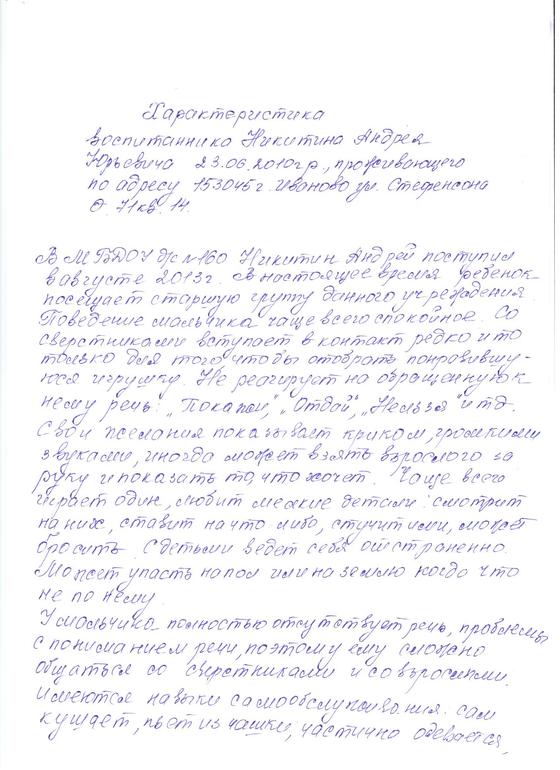 Характеристика
воспитанника Никитина Андрея
Юрьевича 23.06.2010г р., проживающего
по адресу 153045 г. Иваново ул. Стефенсона
д. 71 кв. 14.
В МБДОУ д/с №160 Никитин Андрей поступил
в августе 2013г. В настоящее время ребенок
посещает старшую группу данного учреждения.
Поведение мальчика чаще всего спокойное. Со
сверстниками вступает в контакт редко и то
только для того чтобы отобрать понравившу-
юся игрушку. Не реагирует на обращенную к
нему речь: „Покажи", „Отдай", „Нельзя" и тд.
Свои желания показывает криком, громкими
звуками, иногда может взять взрослого за
руку и показать то, что хочет. Чаще всего
играет один, любит мелкие детали: смотрит
на них, ставит на что либо, стучит ими, может
бросить. С детьми ведет себя отстраненно.
Может упасть на пол или на землю когда что
не по нему.
У мальчика полностью отсутствует речь, проблемы
с пониманием речи, поэтому ему сложно
общаться со сверстниками и со взрослыми.
Имеются навыки самообслуживания: сам
кушает, пьет из чашки, частично одевается,